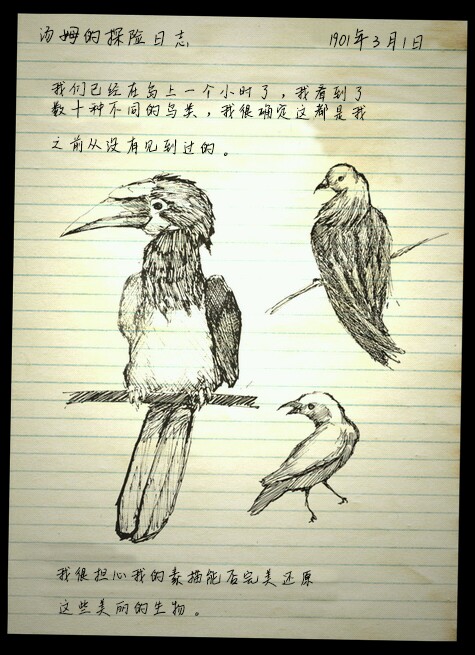 汤姆的探险日志
1901年3月1日
我们已经在岛上一个小时了，我看到了
数十种不同的鸟类，我很确定这都是我
之前从没有见到过的。
我很担心我的素描能否完美还原
这些美丽的生物。